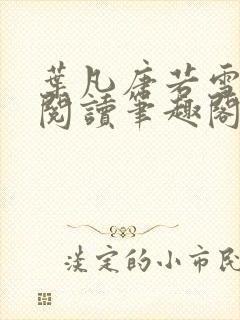 葉凡唐若雪
閱讀筆趣閣
淡定的小市民